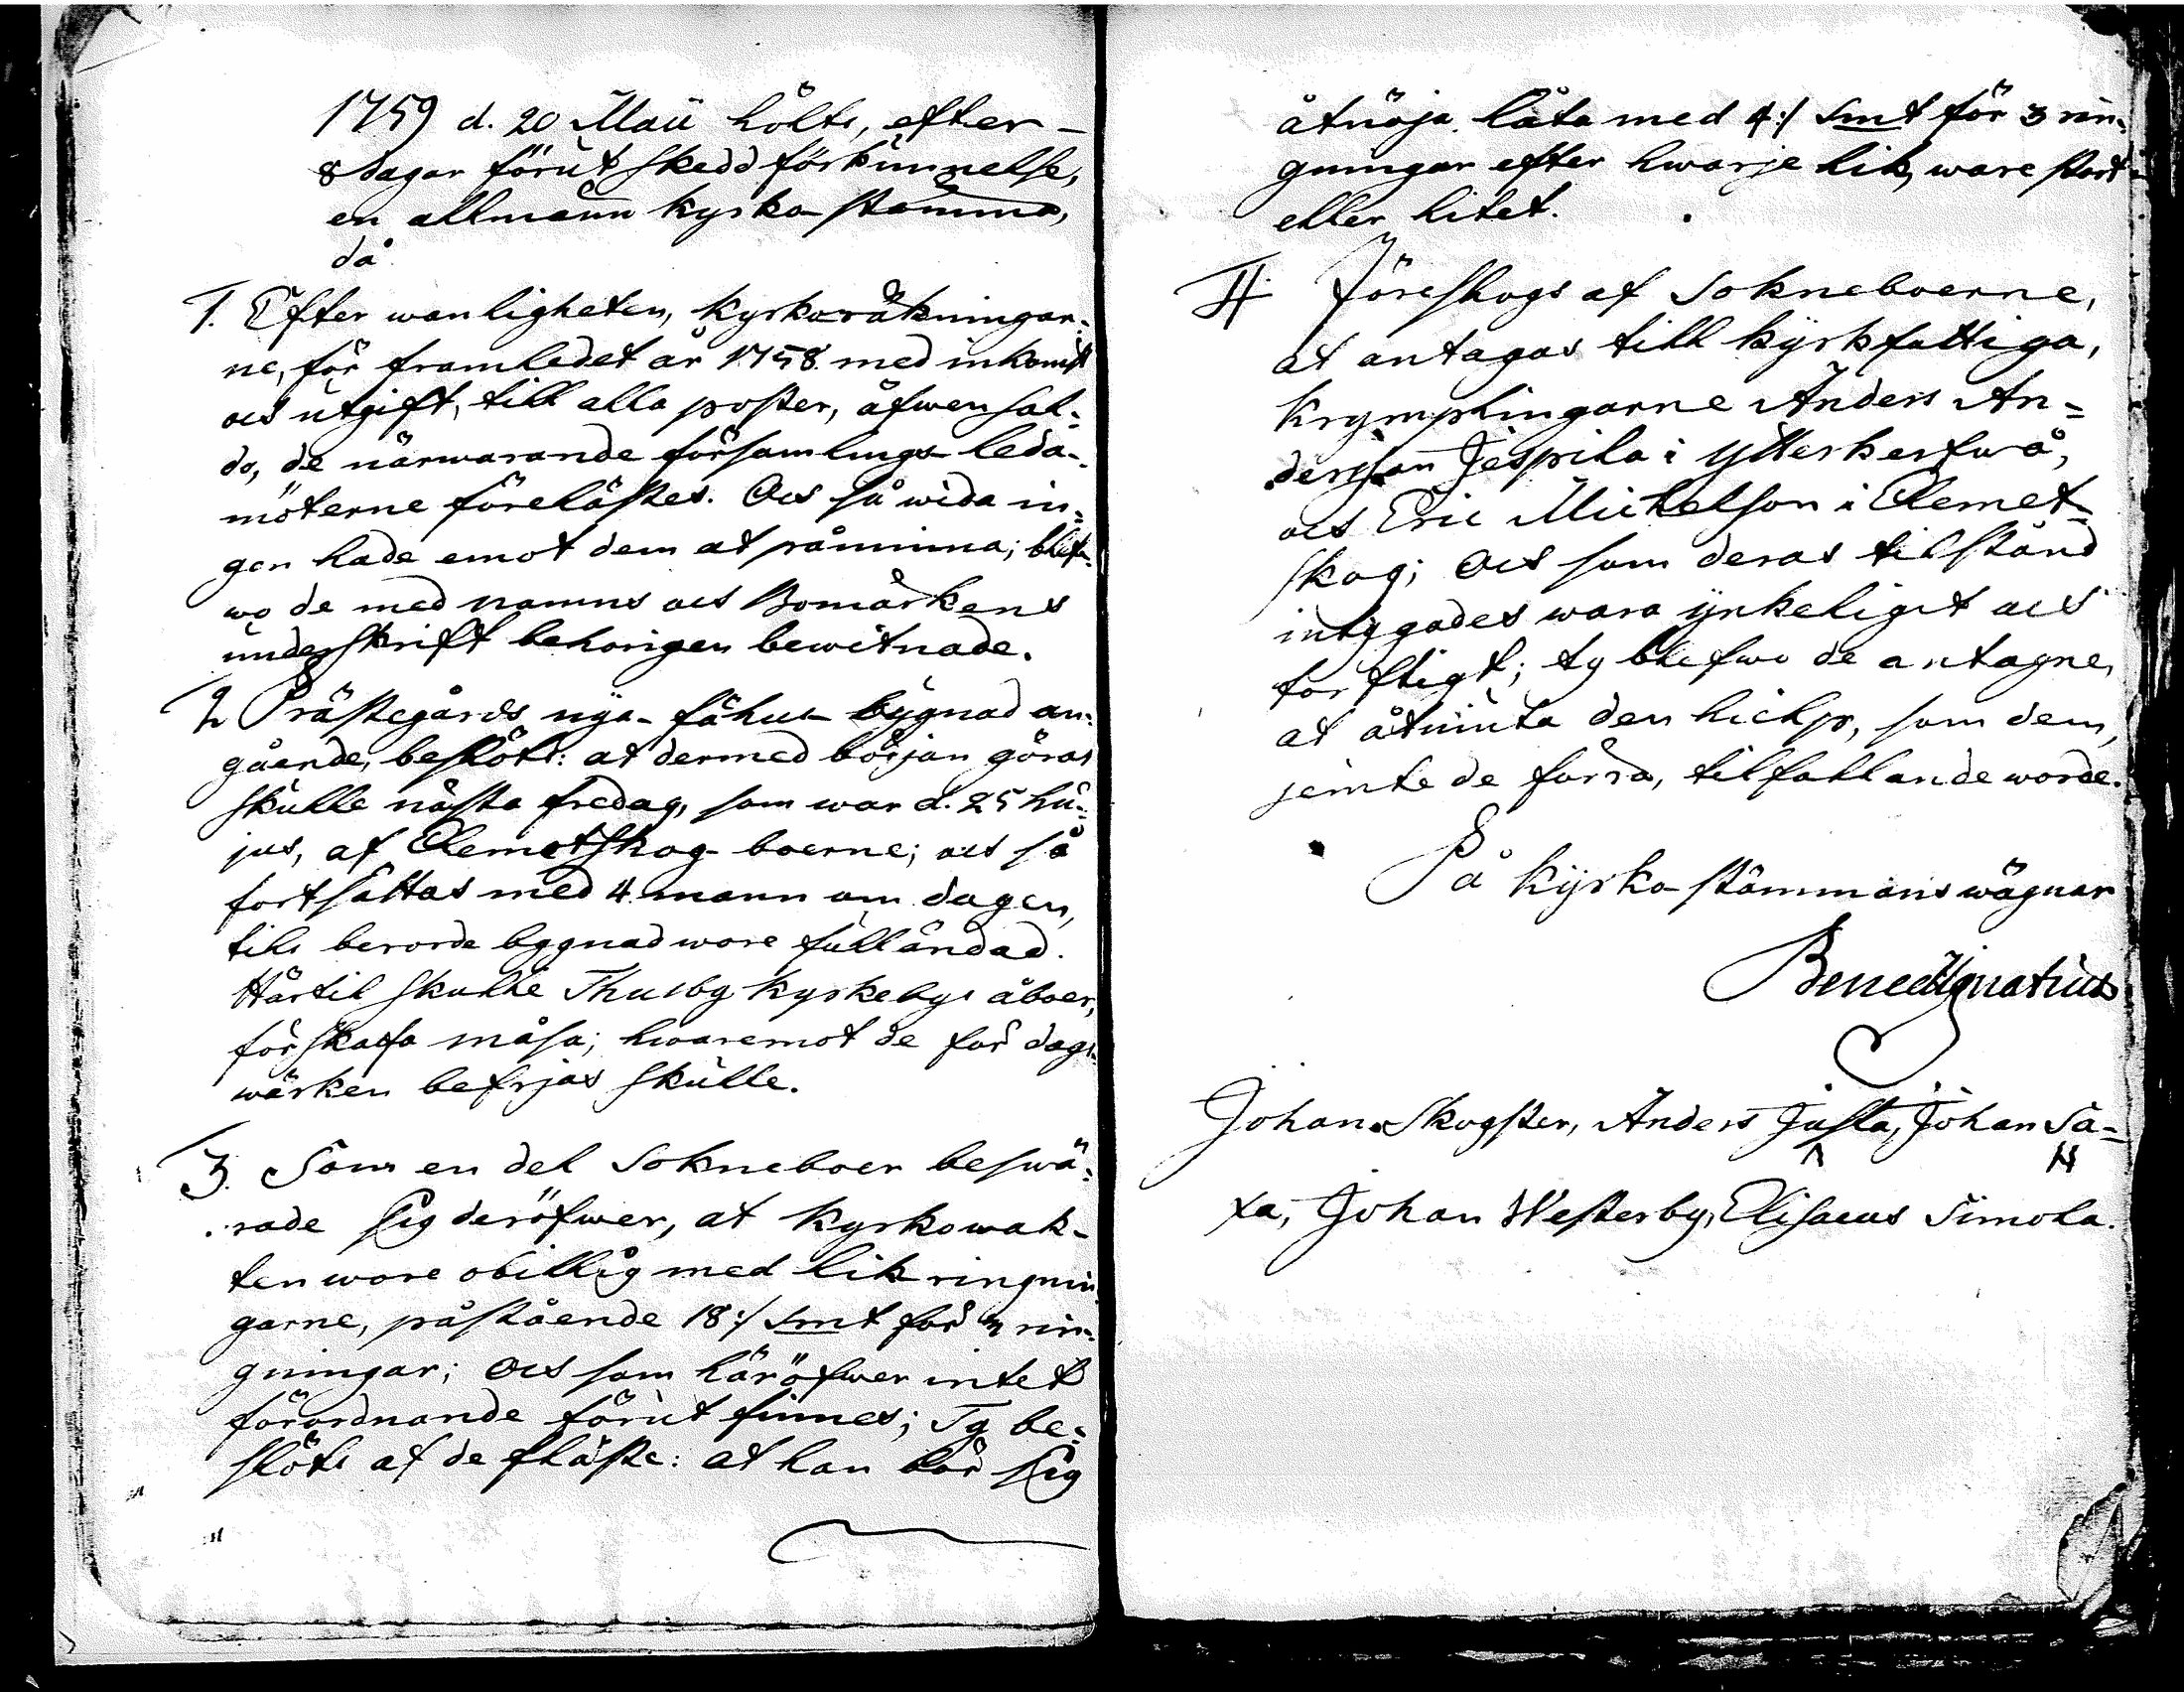 1759 d. 20 Maii hölts, efter-
8 dagar förut skedd förkunnelse,
en allmänn kyrko-stämma,
då
1. Efter wanligheten, kyrkoräkningar-
ne, för framledet år 1758. med inkomst
och utgift, till alla poster, äfwen sal-
do, de närwarande församlings-leda-
möterne förelästes. Och så wida in-
gen hade emot dem at påminna; blef-
wo de med namns och Bomärkens
underskrift behörigen bewitnade.
2 Prästegårds nya-fähus-bygnad an-
gående, beslöts: at dermed börjon göras
skulle nästa fredag, som war d. 25 hu-
jus, af Clemetskog-boerne; och så
fortsättas med 4 mann om dagen,
tils berörde byggnad wore fulländad.
Härtil skulle Thusby kyrkebys åboer,
förskaffa måsa; hwaremot de för dags-
wärken befrjas skulle.
3. Som en del Sokneboer beswä-
rade sig deröfwer, at kyrkowak-
ten wore obillig med lik ringnin-
garne, påstående 18:/ Smt för 3 rin-
gningar; Och som häröfwer intet
förordnande förut finnes; Ty be-
slöts af de fläste: at han bör sig
åtnöja låta med 4:/ Smt för 3 rin-
gningar efter hwarje lik, ware stort
eller litet.
4. Föreslogs af Sokneboerne,
at antagas till kyrkfattiga,
krymplingarne Anders An-
dersson Jespila i Ytterkerfwå,
och Eric Michelson i Clemet-
skog; Och som deras tilstånd
intygades wara ynkeligit och
torftigt; ty blefwo de antagne,
at åtniuta den hielp, som dem,
jemte de förra, tilfallande worde.
På Kyrko-stämmans wägnar
Bened Ignatius
Johan Skogster, Anders Justa, Johan Sa-
xa, Johan Westerby, Elisaeus Simola.